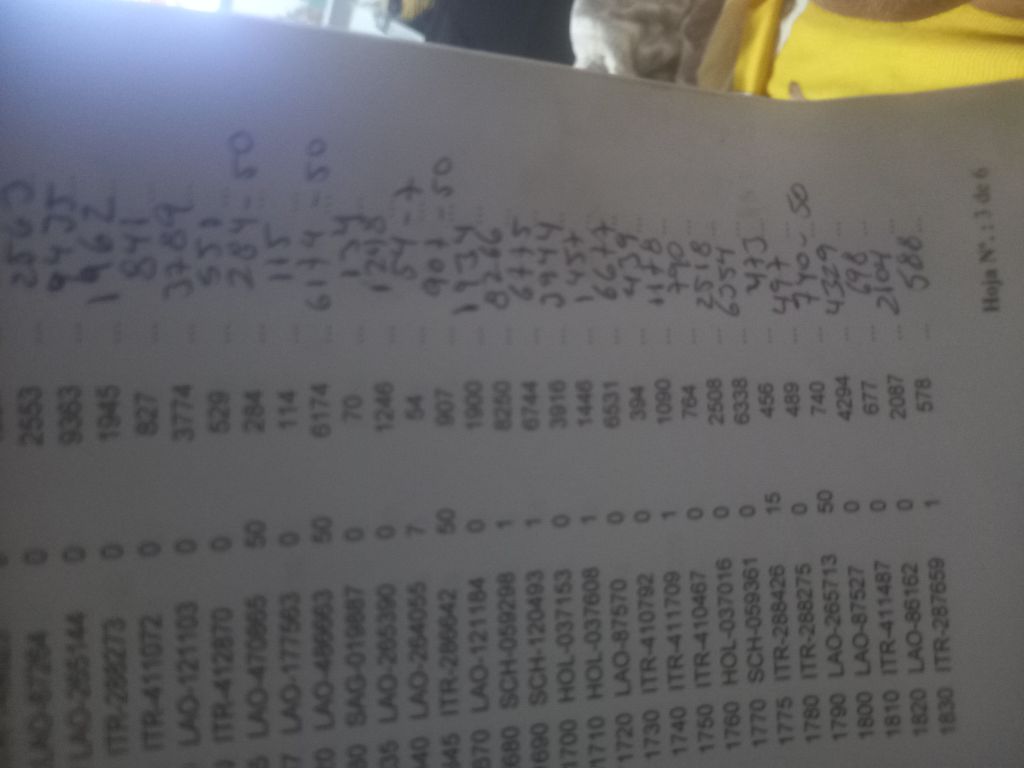 LAO-87254 0 2553 ... 2563
LAO-265144 0 9363 ... 9435
ITR-288273 0 1945 ... 1962
ITR-411072 0 827 ... 841
LAO-121103 0 3774 ... 3789
ITR-412870 0 529 ... 551
LAO-470865 50 284 ... 284-50
LAO-177563 0 114 ... 115
LAO-486663 50 6174 ... 6174-50
SAG-019887 0 70 ... 134
LAO-265390 0 1246 ... 1298
LAO-264055 7 54 ... 54-7
ITR-286642 50 907 ... 907-50
LAO-121184 0 1900 ... 1934
1680 SCH-059298 1 8250 ... 8266
1690 SCH-120493 1 6744 ... 6775
1700 HOL-037153 0 3916 ... 3944
1710 HOL-037608 1 1446 ... 1457
1720 LAO-87570 0 6531 ... 6677
1730 ITR-410792 0 394 ... 439
1740 ITR-411709 1 1090 ... 1178
1750 ITR-410467 0 764 ... 790
1760 HOL-037016 0 2508 ... 2518
1770 SCH-059361 0 6338 ... 6354
1775 ITR-288426 15 456 ... 473
1780 ITR-288275 0 489 ... 497
1790 LAO-265713 50 740 ... 740-50
1800 LAO-87527 0 4294 ... 4329
1810 ITR-411487 0 677 ... 698
1820 LAO-86162 0 2087 ... 2104
1830 ITR-287659 1 578 ... 588
Hoja Nº. : 3 de 6